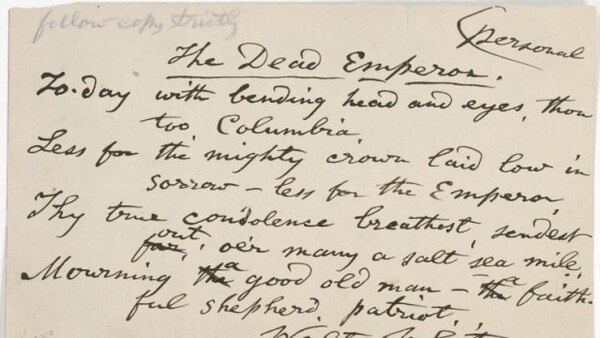 follow copy strictly
(personal
The Dead Emperor.
To-day with bending head and eyes, thou
too, Columbia,
Less for the mighty crown laid low in
sorrow — less for the Emperor,
Thy true condolence breathest, sendest
far, out o'er many a salt sea mile,
Mourning the a good old man — the a faith-
ful shepherd, patriot.
Walt